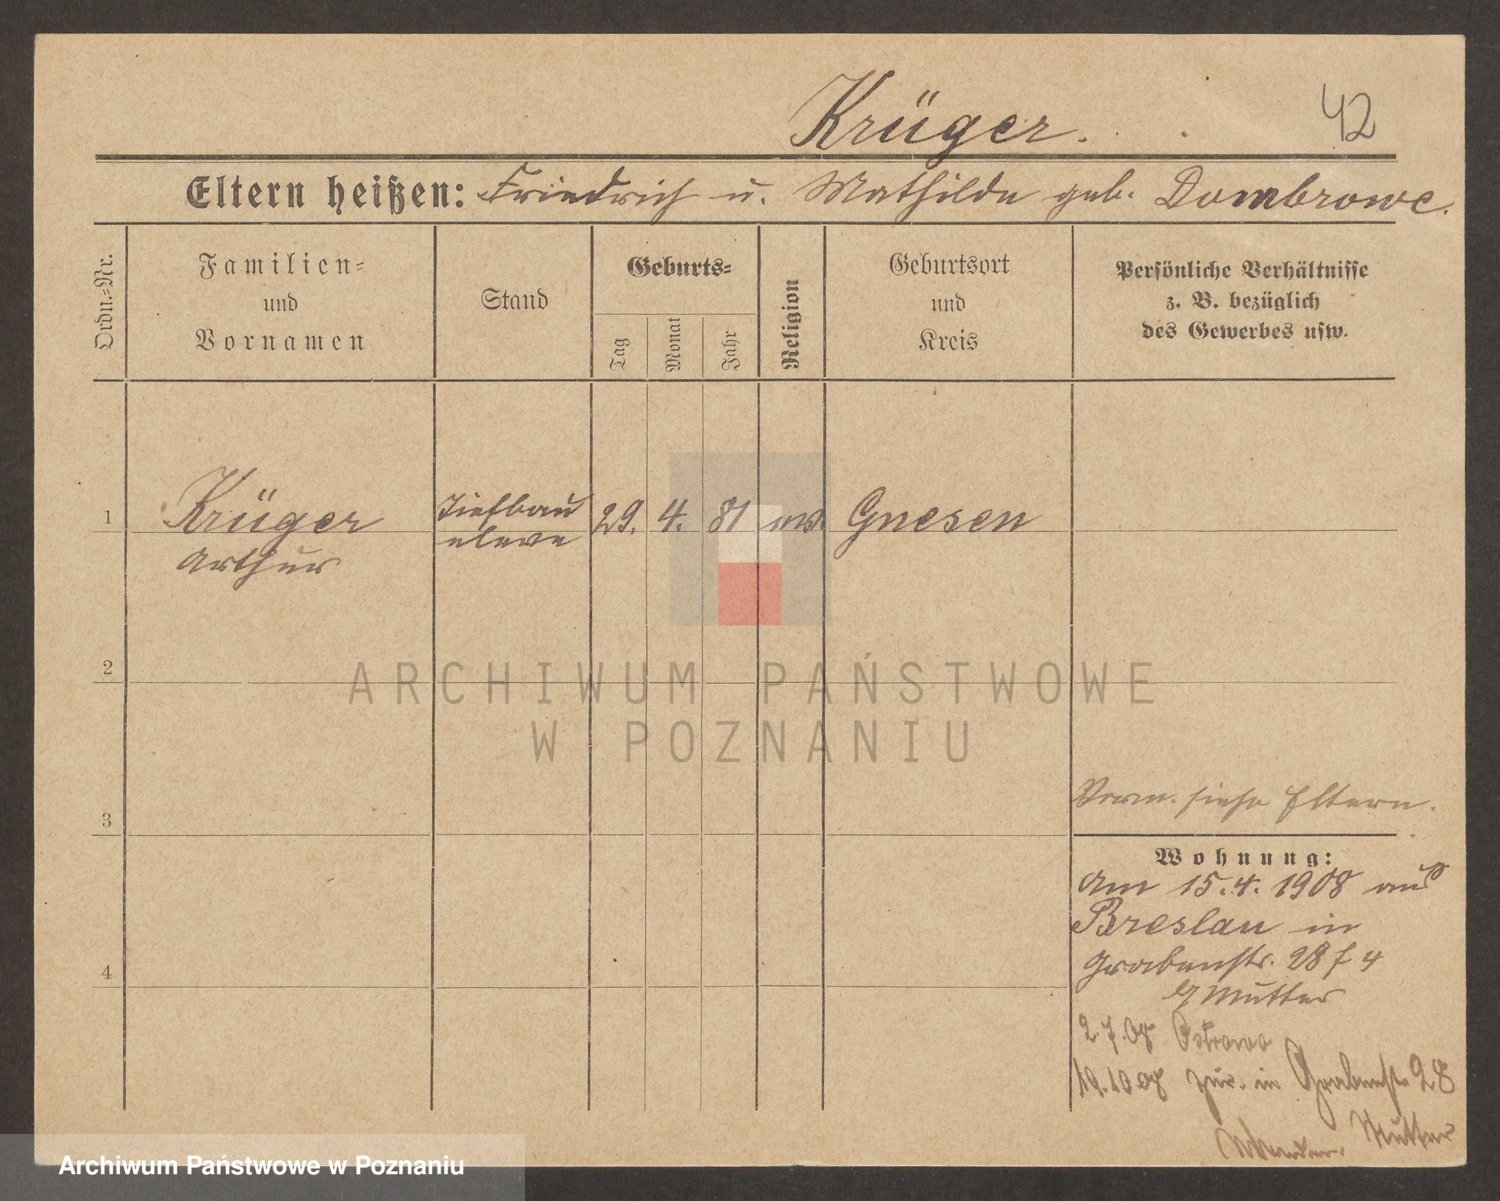 Krüger.
42
Eltern heißen: Friedrich u. Mathilde geb. Dombrowe.
Ordn.-Nr.
Familien-
und
Vornamen
Stand
Geburts-
Tag
Monat
Jahr
Religion
Geburtsort
und
Kreis
Persönliche Verhältnisse
z. B. bezüglich
des Gewerbes usw.
1
Krüger
Arthur
Tiefbau
eleve
29. 4. 81
Gnesen
2
ARCHIWUM PAŃSTWOWE
W POZNANIU
3
Verm. siehe Eltern.
Wohnung:
Am 15.4.1908 aus
Breslau in
Grabenstr. 28
b/Mutter
4
2.7.08 Ostrowo
19.10.08 zur. in Grabenstr. 28
Mutter
Archiwum Państwowe w Poznaniu